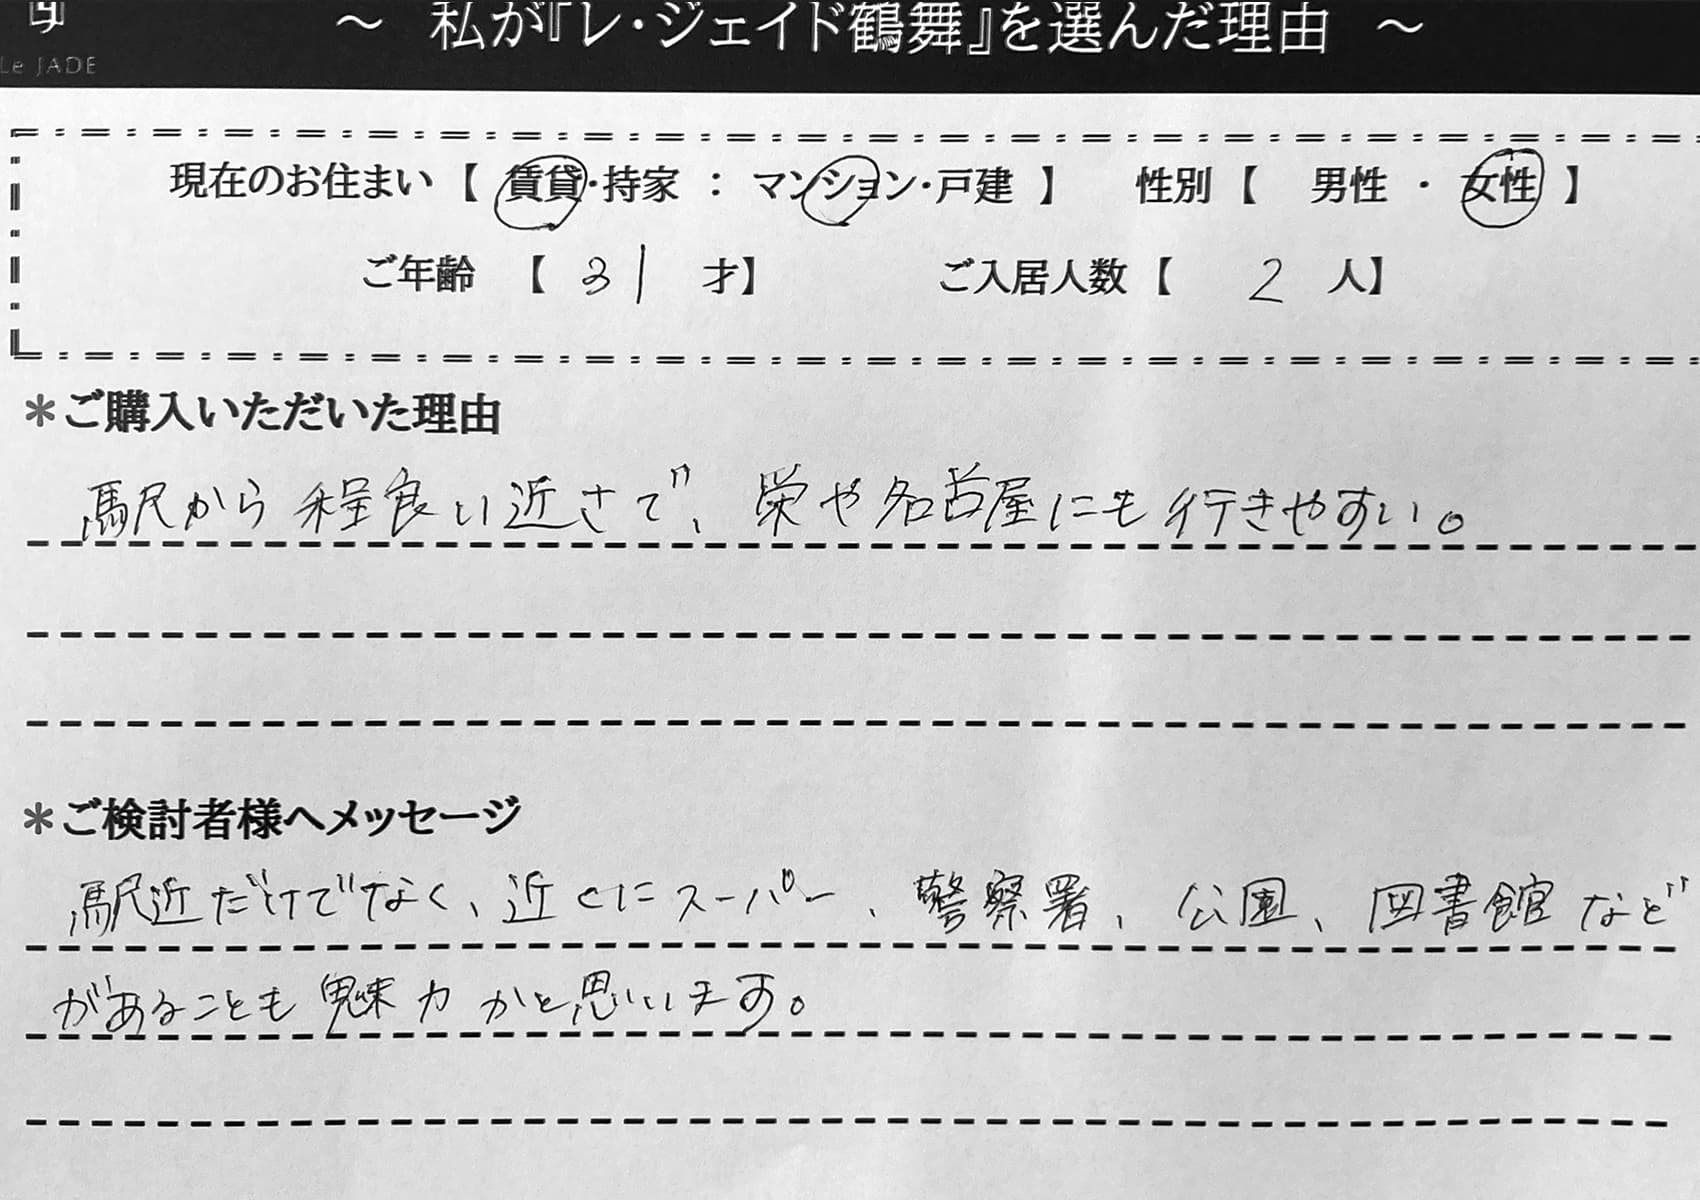 ～ 私が『レ・ジェイド鶴舞』を選んだ理由 ～
Le JADE
現在のお住まい【 賃貸・持家 ： マンション・戸建 】 性別【 男性 ・ 女性 】
ご年齢 【 31 才】 ご入居人数【 2 人】
＊ご購入いただいた理由
駅から程良い近さで、栄や名古屋にも行きやすい。
＊ご検討者様へメッセージ
駅近だけでなく、近くにスーパー、警察署、公園、図書館など
があることも魅力かと思いいます。